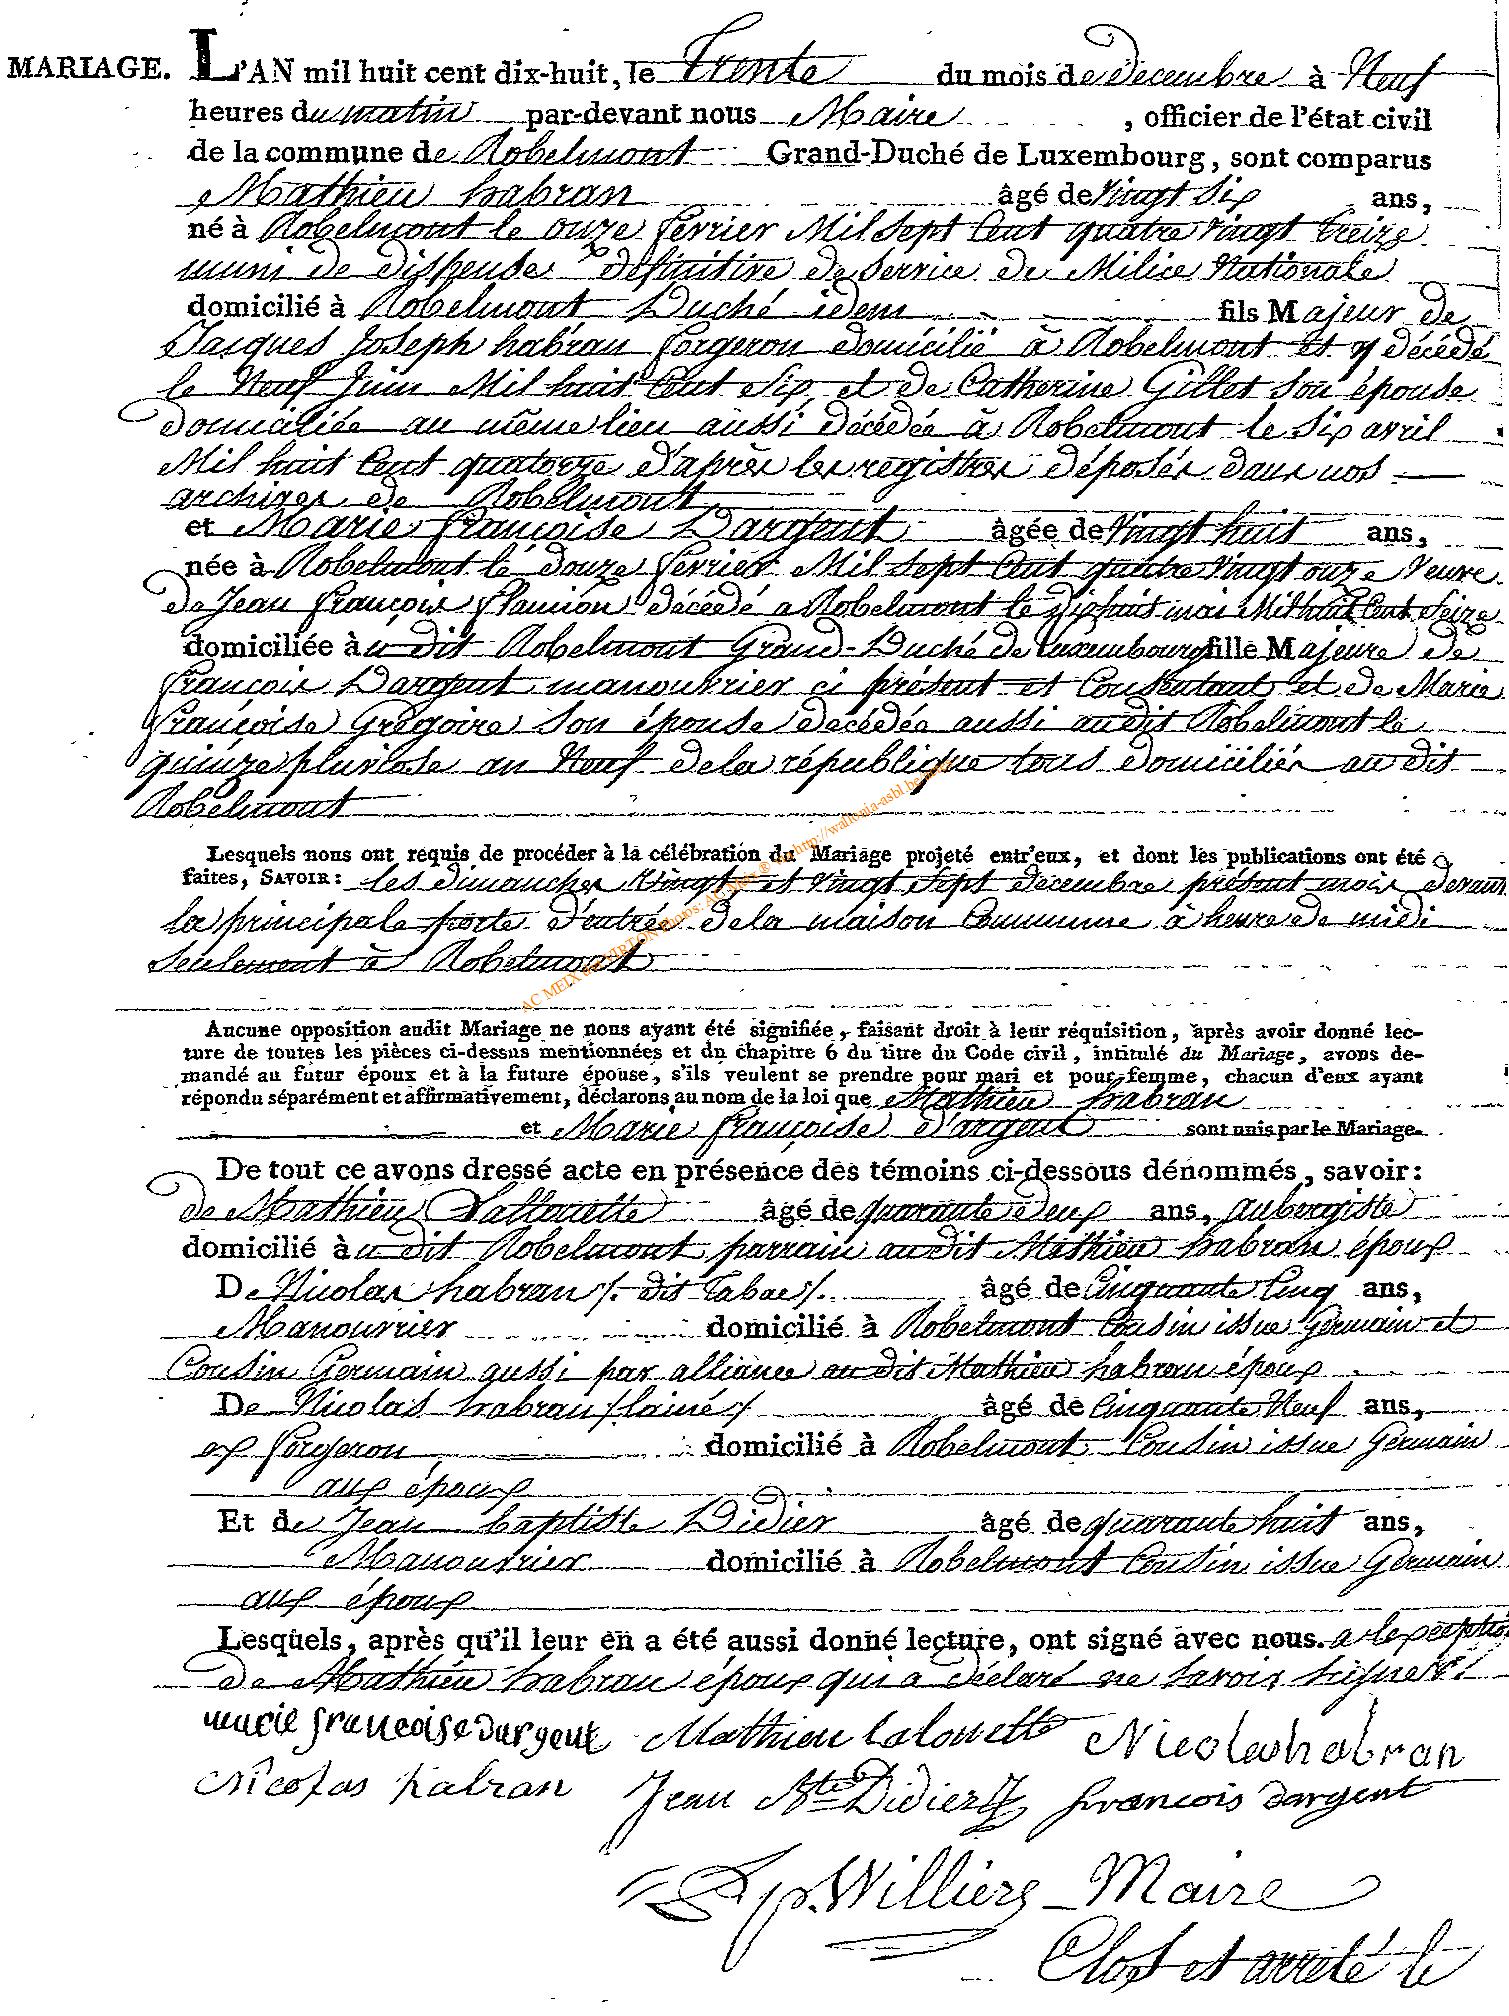 MARIAGE. L'AN mil huit cent dix-huit, le Trente du mois de decembre à Neuf
heures du matin par-devant nous Maire , officier de l'état civil
de la commune de Robelmont Grand-Duché de Luxembourg, sont comparus
Mathieu habran âgé de Vingt Six ans,
né à Robelmont le onze fevrier Mil Sept Cent quatre vingt treize
muni de dispense definitive de Service de Milice Nationale
domicilié à Robelmont Duché idem fils Majeur de
Jacques Joseph habran forgeron domicilié à Robelmont et y décédé
le Neuf Juin Mil huit Cent Six et de Catherine Gillet Son épouse
domiciliée au même lieu aussi décédée à Robelmont le Six avril
Mil huit Cent quatorze d'après les registres déposés dans nos
archives de Robelmont
et Marie françoise Dargent âgée de Vingt huit ans,
née à Robelmont le douze fevrier Mil Sept Cent quatre Vingt onze Veuve
de Jean françois flamion décédé a Robelmont le dix huit mai Mil huit Cent Seize
domiciliée à u dit Robelmont Grand-Duché de Luxembourg fille Majeure de
françois Dargent manouvrier ci présent et Consentant et de Marie
françoise Grégoire Son épouse décédée aussi audit Robelmont le
quinze pluviose an Neuf de la république tous domiciliés au dit
Robelmont
Lesquels nous ont requis de procéder à la célébration du Mariage projeté entr'eux, et dont les publications ont été
faites, SAVOIR: les dimanches Vingt et Vingt Sept decembre présent mois devant
la principale porte d'entrée de la maison Commune à heure de midi
seulement à Robelmont
AC MEIX dvt VIRTON Photos: AC Meix © http://wallonia-asbl.be
Aucune opposition audit Mariage ne nous ayant été signifiée, faisant droit à leur réquisition, après avoir donné lec-
ture de toutes les pièces ci-dessus mentionnées et du chapitre 6 du titre du Code civil, intitulé du Mariage, avons de-
mandé au futur époux et à la future épouse, s'ils veulent se prendre pour mari et pour femme, chacun d'eux ayant
répondu séparément et affirmativement, déclarons au nom de la loi que Mathieu habran
et Marie françoise d'argent sont unis par le Mariage.
De tout ce avons dressé acte en présence des témoins ci-dessous dénommés, savoir:
de Mathieu Lallouette âgé de quarante deux ans, aubergiste
domicilié à u dit Robelmont parrain au dit Mathieu habran époux
De Nicolas habran /. dit Tabac /. âgé de Cinquante Cinq ans,
Manouvrier domicilié à Robelmont Cousin issue Germain et
Cousin Germain aussi par alliance au dit Mathieu habran époux
De Nicolas habran / lainé / âgé de Cinquante Neuf ans,
ex forgeron domicilié à Robelmont Cousin issue Germain
aux époux
Et de Jean baptiste Didier âgé de quarante huit ans,
Manouvrier domicilié à Robelmont Cousin issue Germain
aux époux
Lesquels, après qu'il leur en a été aussi donné lecture, ont signé avec nous. a lexception
de Mathieu habran époux qui a déclaré ne savoir signer
marie françoise dargent Mathieu lalouette Nicolas habran
Nicolas habran Jean Bte Didier françois dargent
p. Williere Maire
Clos et arreté le